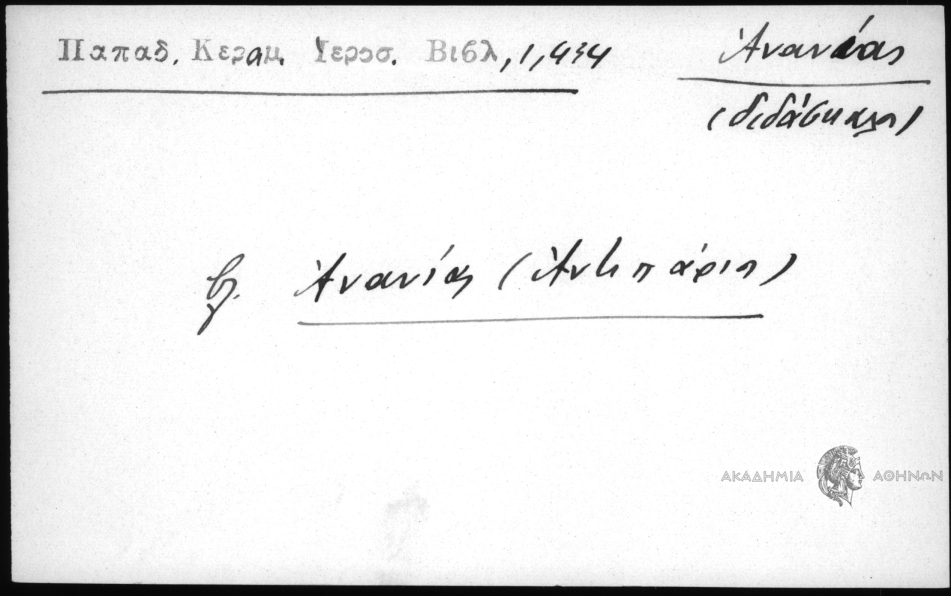 Παπαδ. Κεραμ. Ιεροσ. Βιβλ, 1, 434
Ἀνανίας
(διδάσκαλος)
βλ. Ἀνανίας (Ἀντιπάριος)
ΑΚΑΔΗΜΙΑ ΑΘΗΝΩΝ